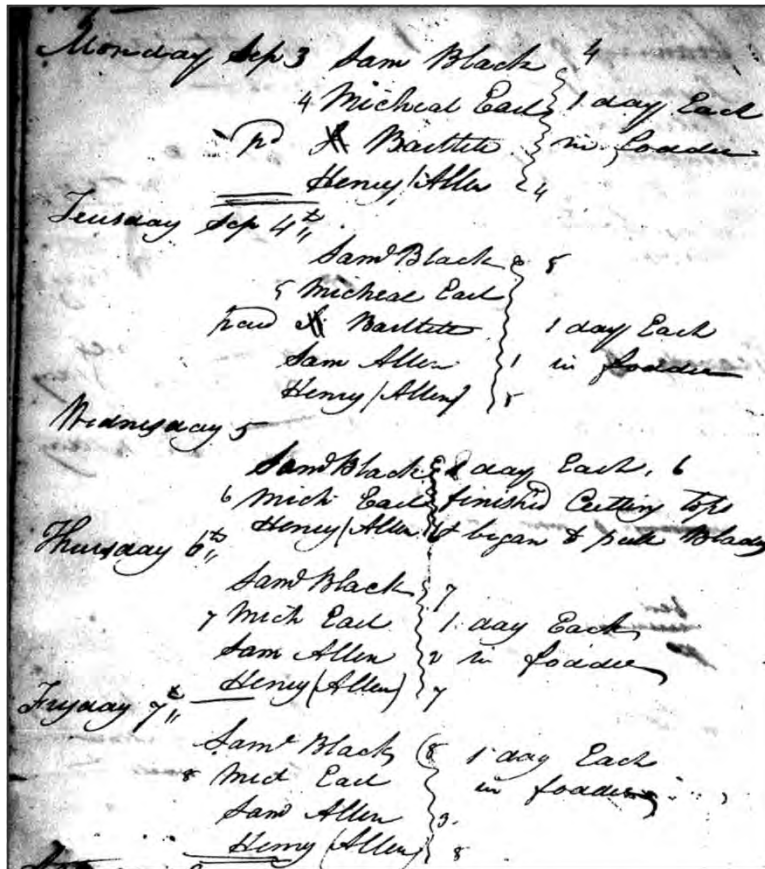 Monday Sep 3 Sam Black 4
4 Micheal Earl 1 day Each
pd Bartlett in fodder
Henry (Allen 4
Teusday Sep 4th
Saml Black 5
5 Micheal Earl
paid Bartlett 1 day Each
Sam Allen 1 in fodder
Henry (Allen) 5
Wednesday 5
Saml Black 1 day Each, 6
6 Mich Earl finished Cutting tops
Henry (Allen 6 & began to pull Blades
Thursday 6th
Saml Black 7
7 Mich Earl 1 day Each
Sam Allen 2 in fodder
Henry (Allen) 7
Fryday 7th
Saml Black 8 1 day Each
8 Mich Earl in fodder
Saml Allen 3
Henry (Allen) 8